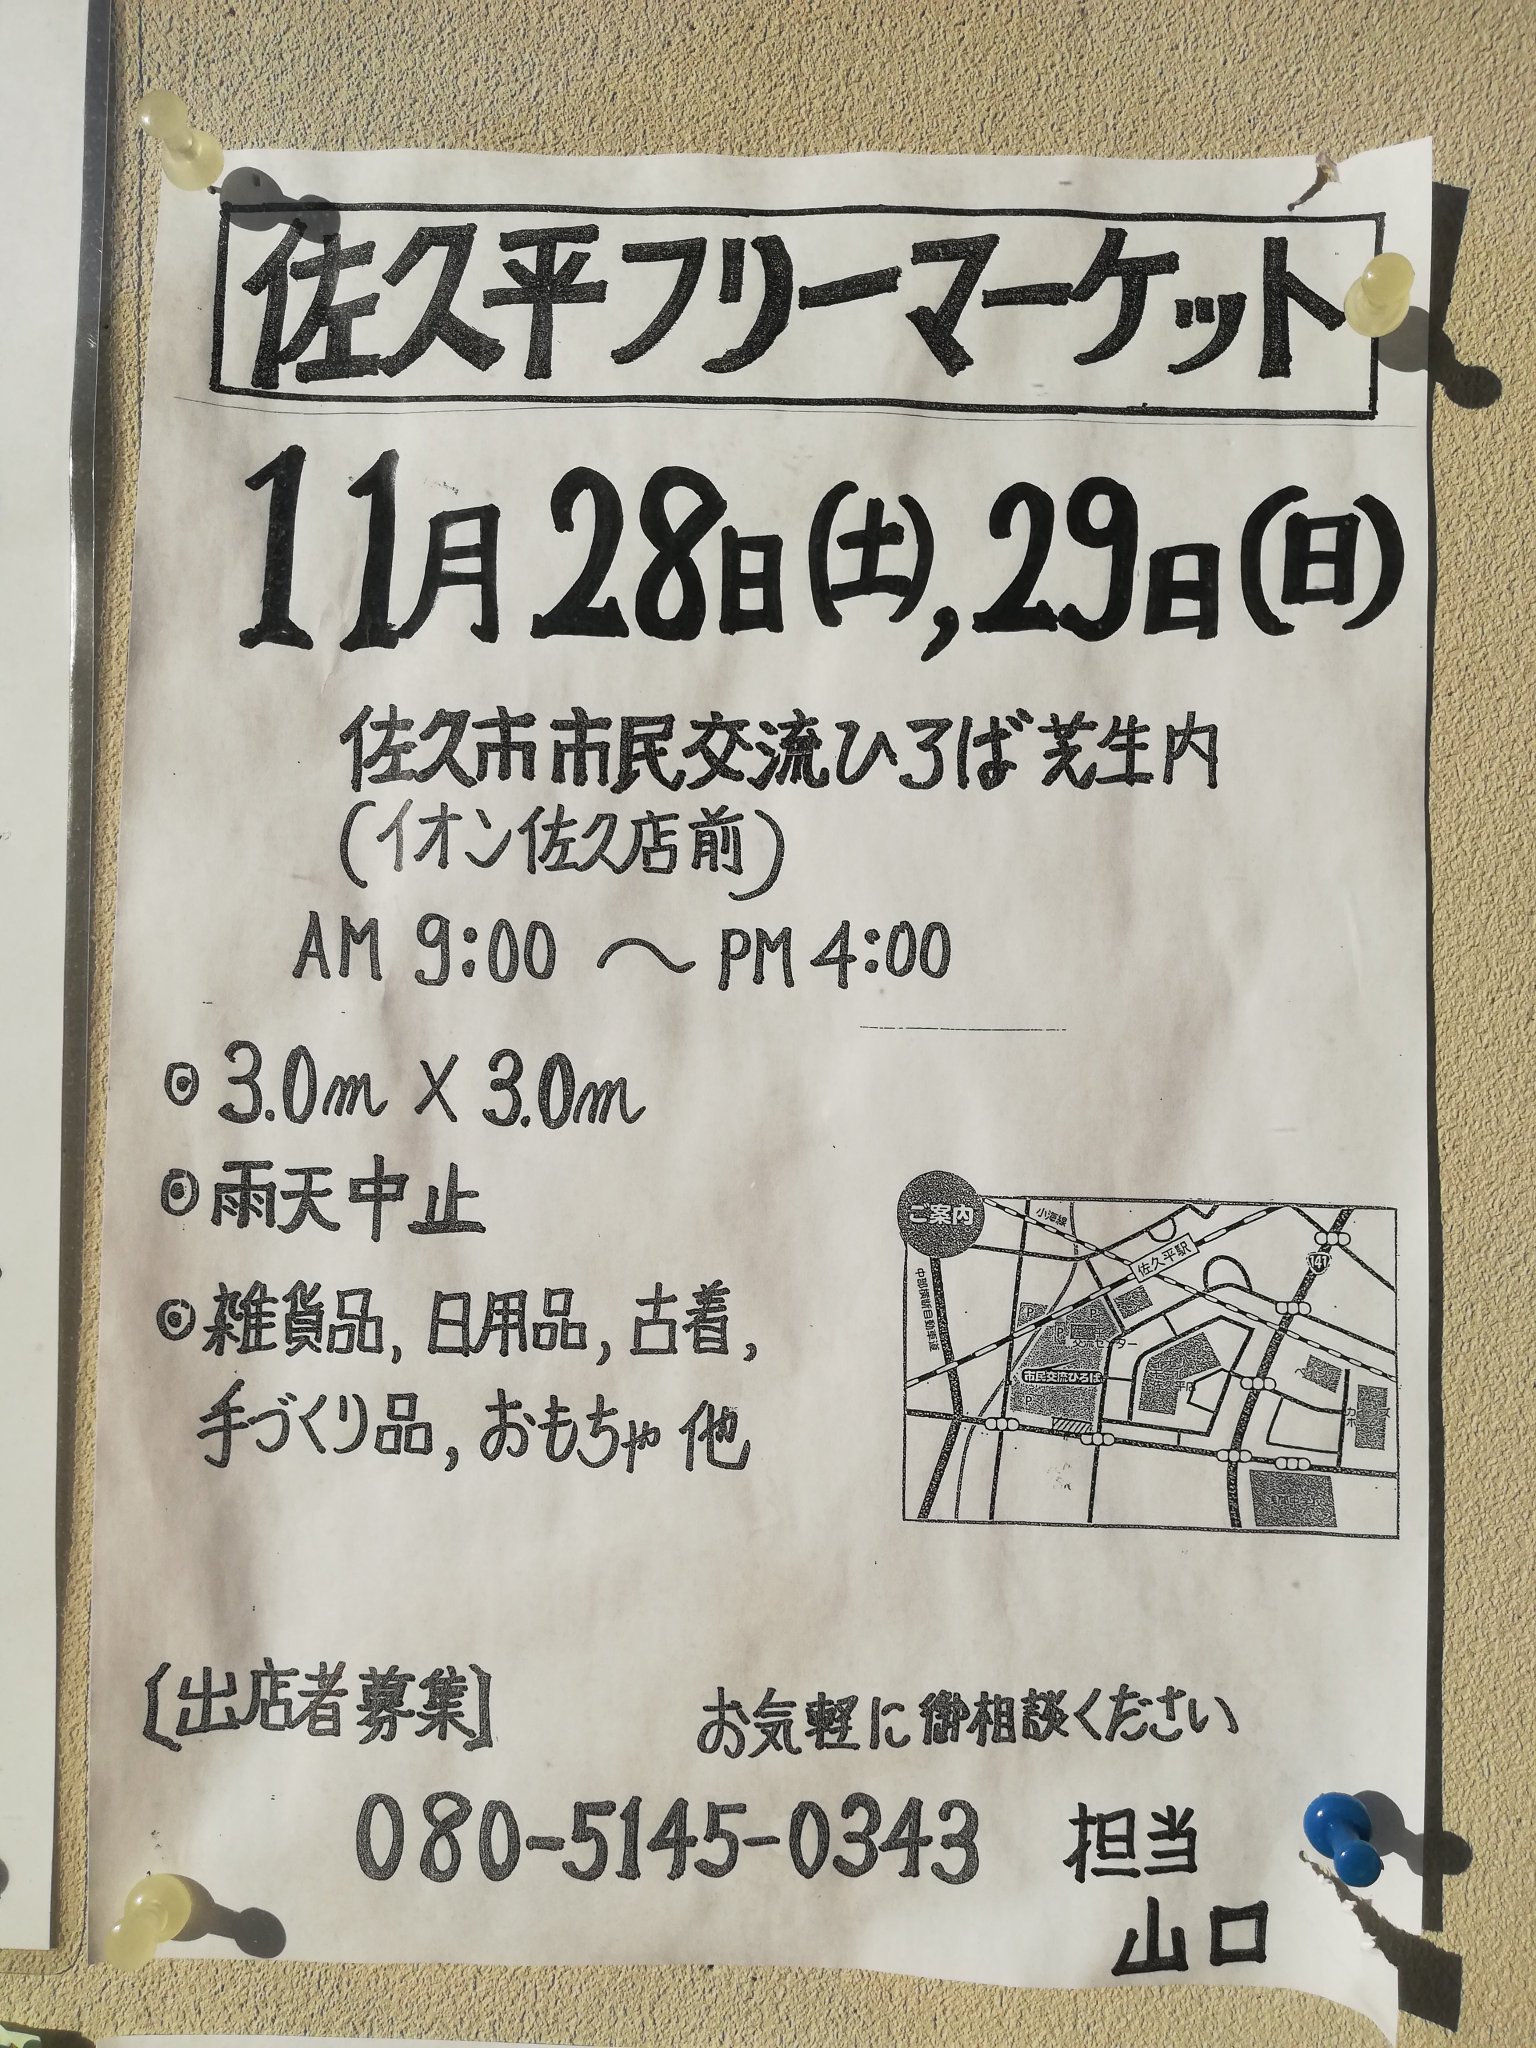 佐久平フリーマーケット
11月28日(土),29日(日)
佐久市市民交流ひろば芝生内
(イオン佐久店前)
AM 9:00 〜 PM 4:00
◉ 3.0m × 3.0m
◉ 雨天中止
◉ 雑貨品, 日用品, 古着,
手づくり品, おもちゃ 他
ご案内
小海線
佐久平駅
141
中部横断自動車道
P
P
交流センター
市民交流ひろば
P
[出店者募集]
お気軽に御相談ください
080-5145-0343 担当
山口